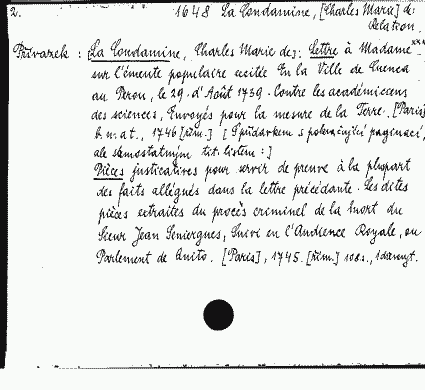 2. 1648 La Condamine, [Charles Marie] de:
Relation.
Přívazek : [La Condamine, Charles Marie de]: Lettre à Madame ***
sur l'émeute populaire excitée En la Ville de Cuenca
au Perou, le 29. d'Août 1739. Contre les académiciens
des sciences, Envoyés pour la mesure de la Terre. [Paris]
b.n.a t., 1746 [řím.] [S původkem s pokračující paginací,
ale samostatným tit. listem:]
Pièces justicatives pour servir de preuve à la plupart
des faits allégués dans la lettre précédante. Les dites
pièces extraites du procès criminel de la Mort du
Sieur Jean Seniergues, Suivi en l'Audience Royale, ou
Parlement de Quito. [Paris], 1745. [řím.] 108 s., 1